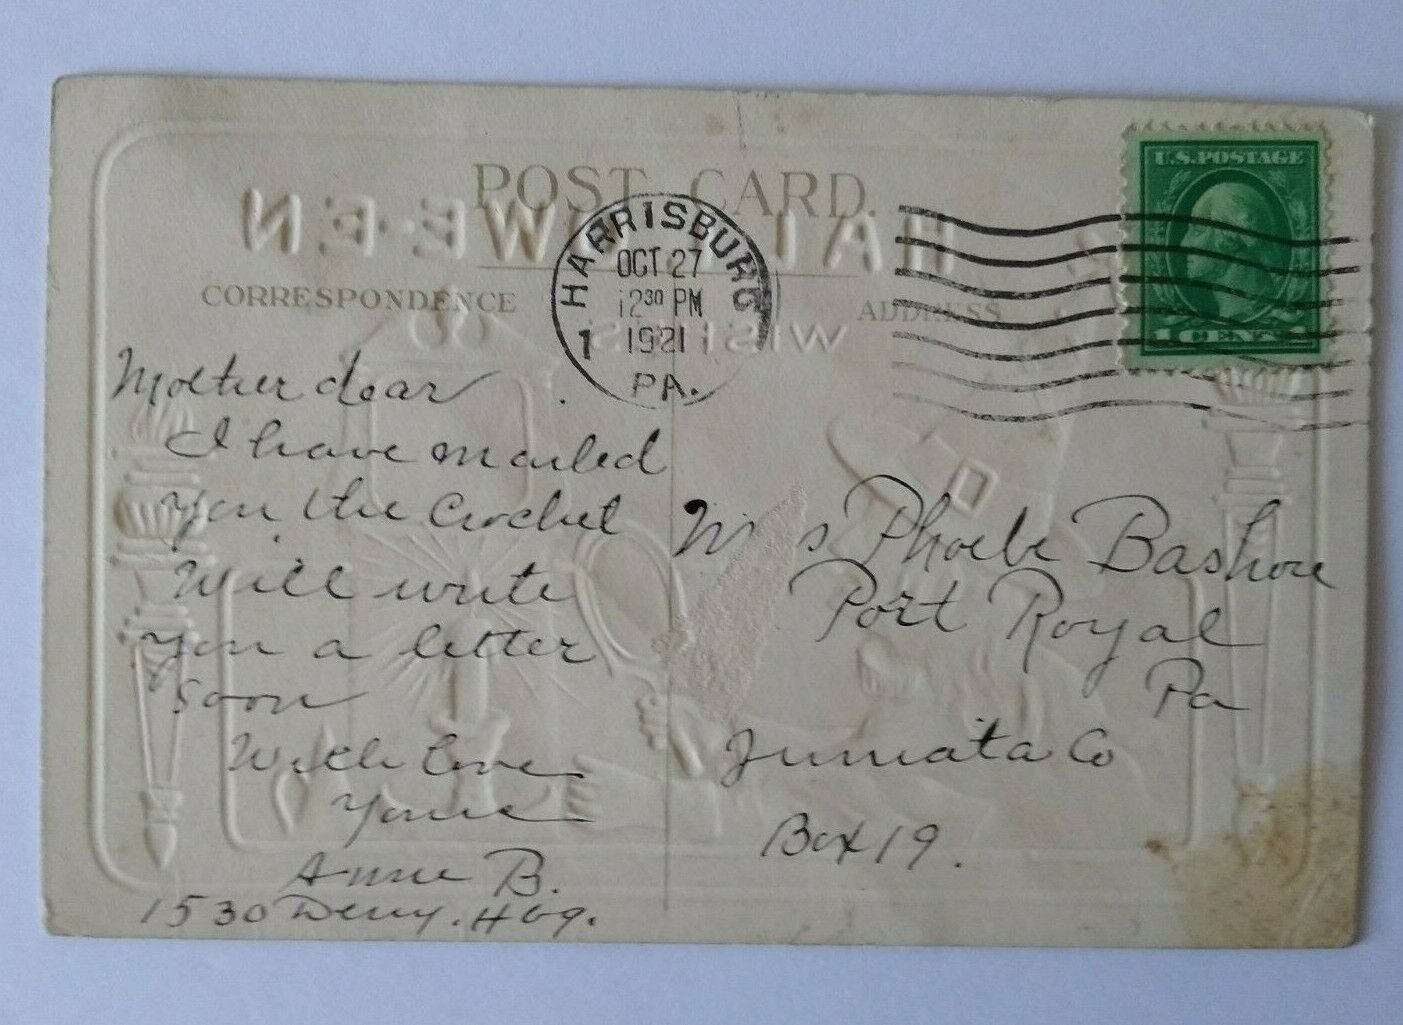 POST CARD.
CORRESPONDENCE
ADDRESS
HALLOWE-EN
WISHES
HARRISBURG
OCT 27
12 30 PM
1921
1
PA.
U.S. POSTAGE
1 CENT 1
Mother dear
I have mailed
you the Crochet
Will write
you a letter
soon
With love
Yours
Anne B.
1530 Derry. Hbg.
Mrs Phoebe Bashore
Port Royal
Pa
Juniata Co
Box 19.